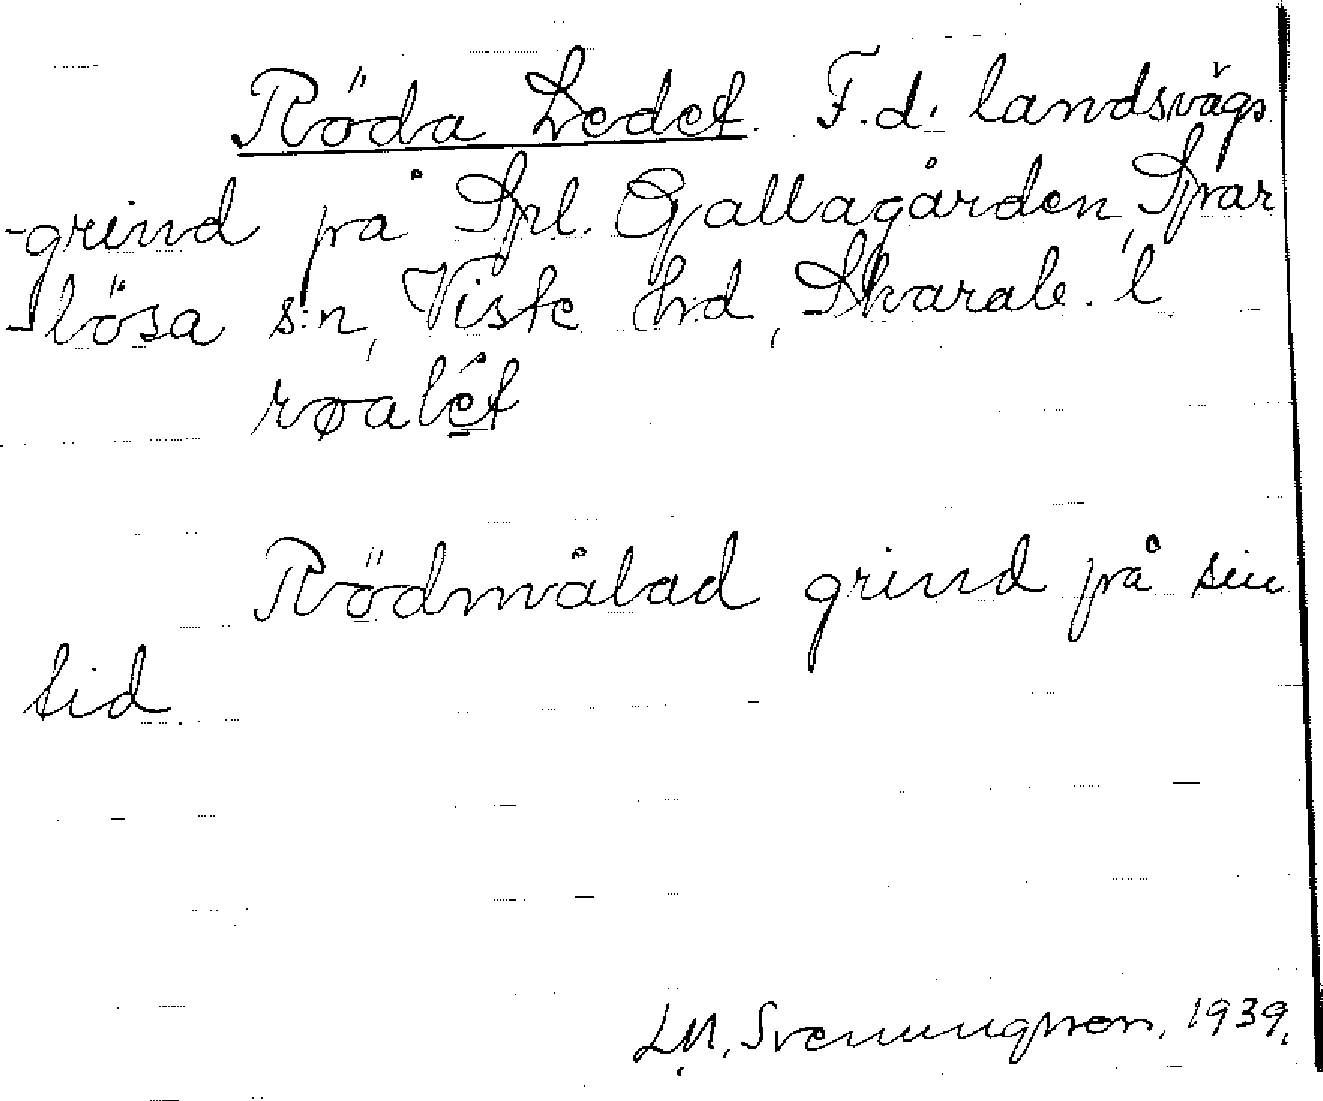 Röda Ledet. F.d. landsvägs
-grind på Spl. Gallagården, Spar
-lösa s:n, Viste hd, Skarab. l
røalét
Rödmålad grind på sin
tid.
L.M. Svenungsson. 1939.